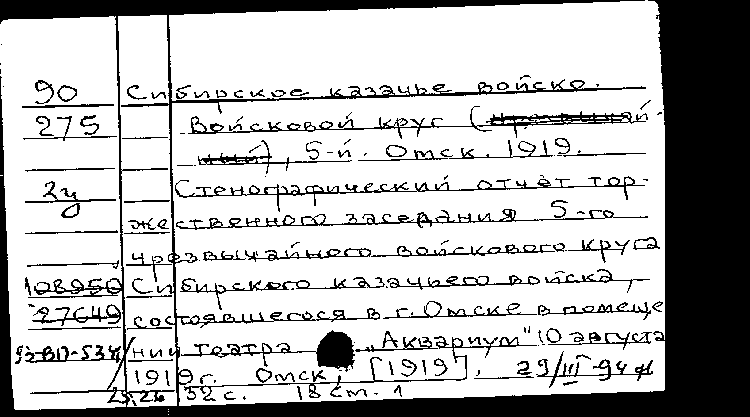 90 Сибирское казачье войско.
275 Войсковой круг (чрезвычай-
ный), 5-й. Омск. 1919.
2у Стенографический отчёт тор-
жественного заседания 5-го
чрезвычайного войскового круга
108950 Сибирского казачьего войска,
27649 состоявшегося в г. Омске в помеще
нии театра „Аквариум" 10 августа
1919 г. Омск, [1919]. 29/III-94
32 с. 18 см. 1